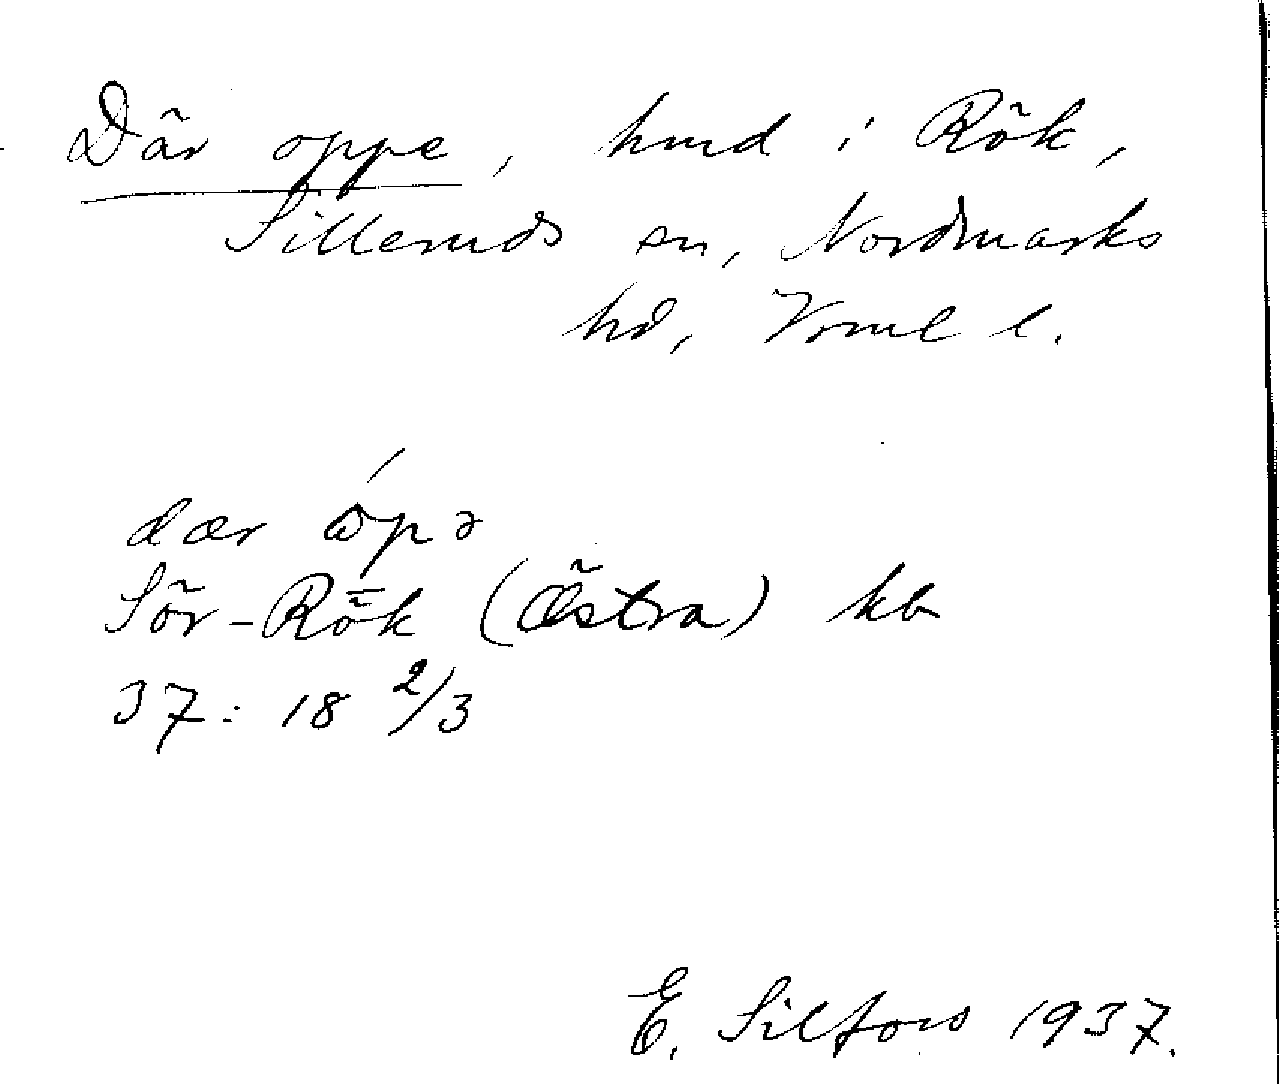 Där oppe, hmd i Rök,
Silleruds sn, Nordmarks
hd, Vrml l.
dær òpə
Sör-Rök (Östra) kb
37:18 2/3
E. Silfors 1937.